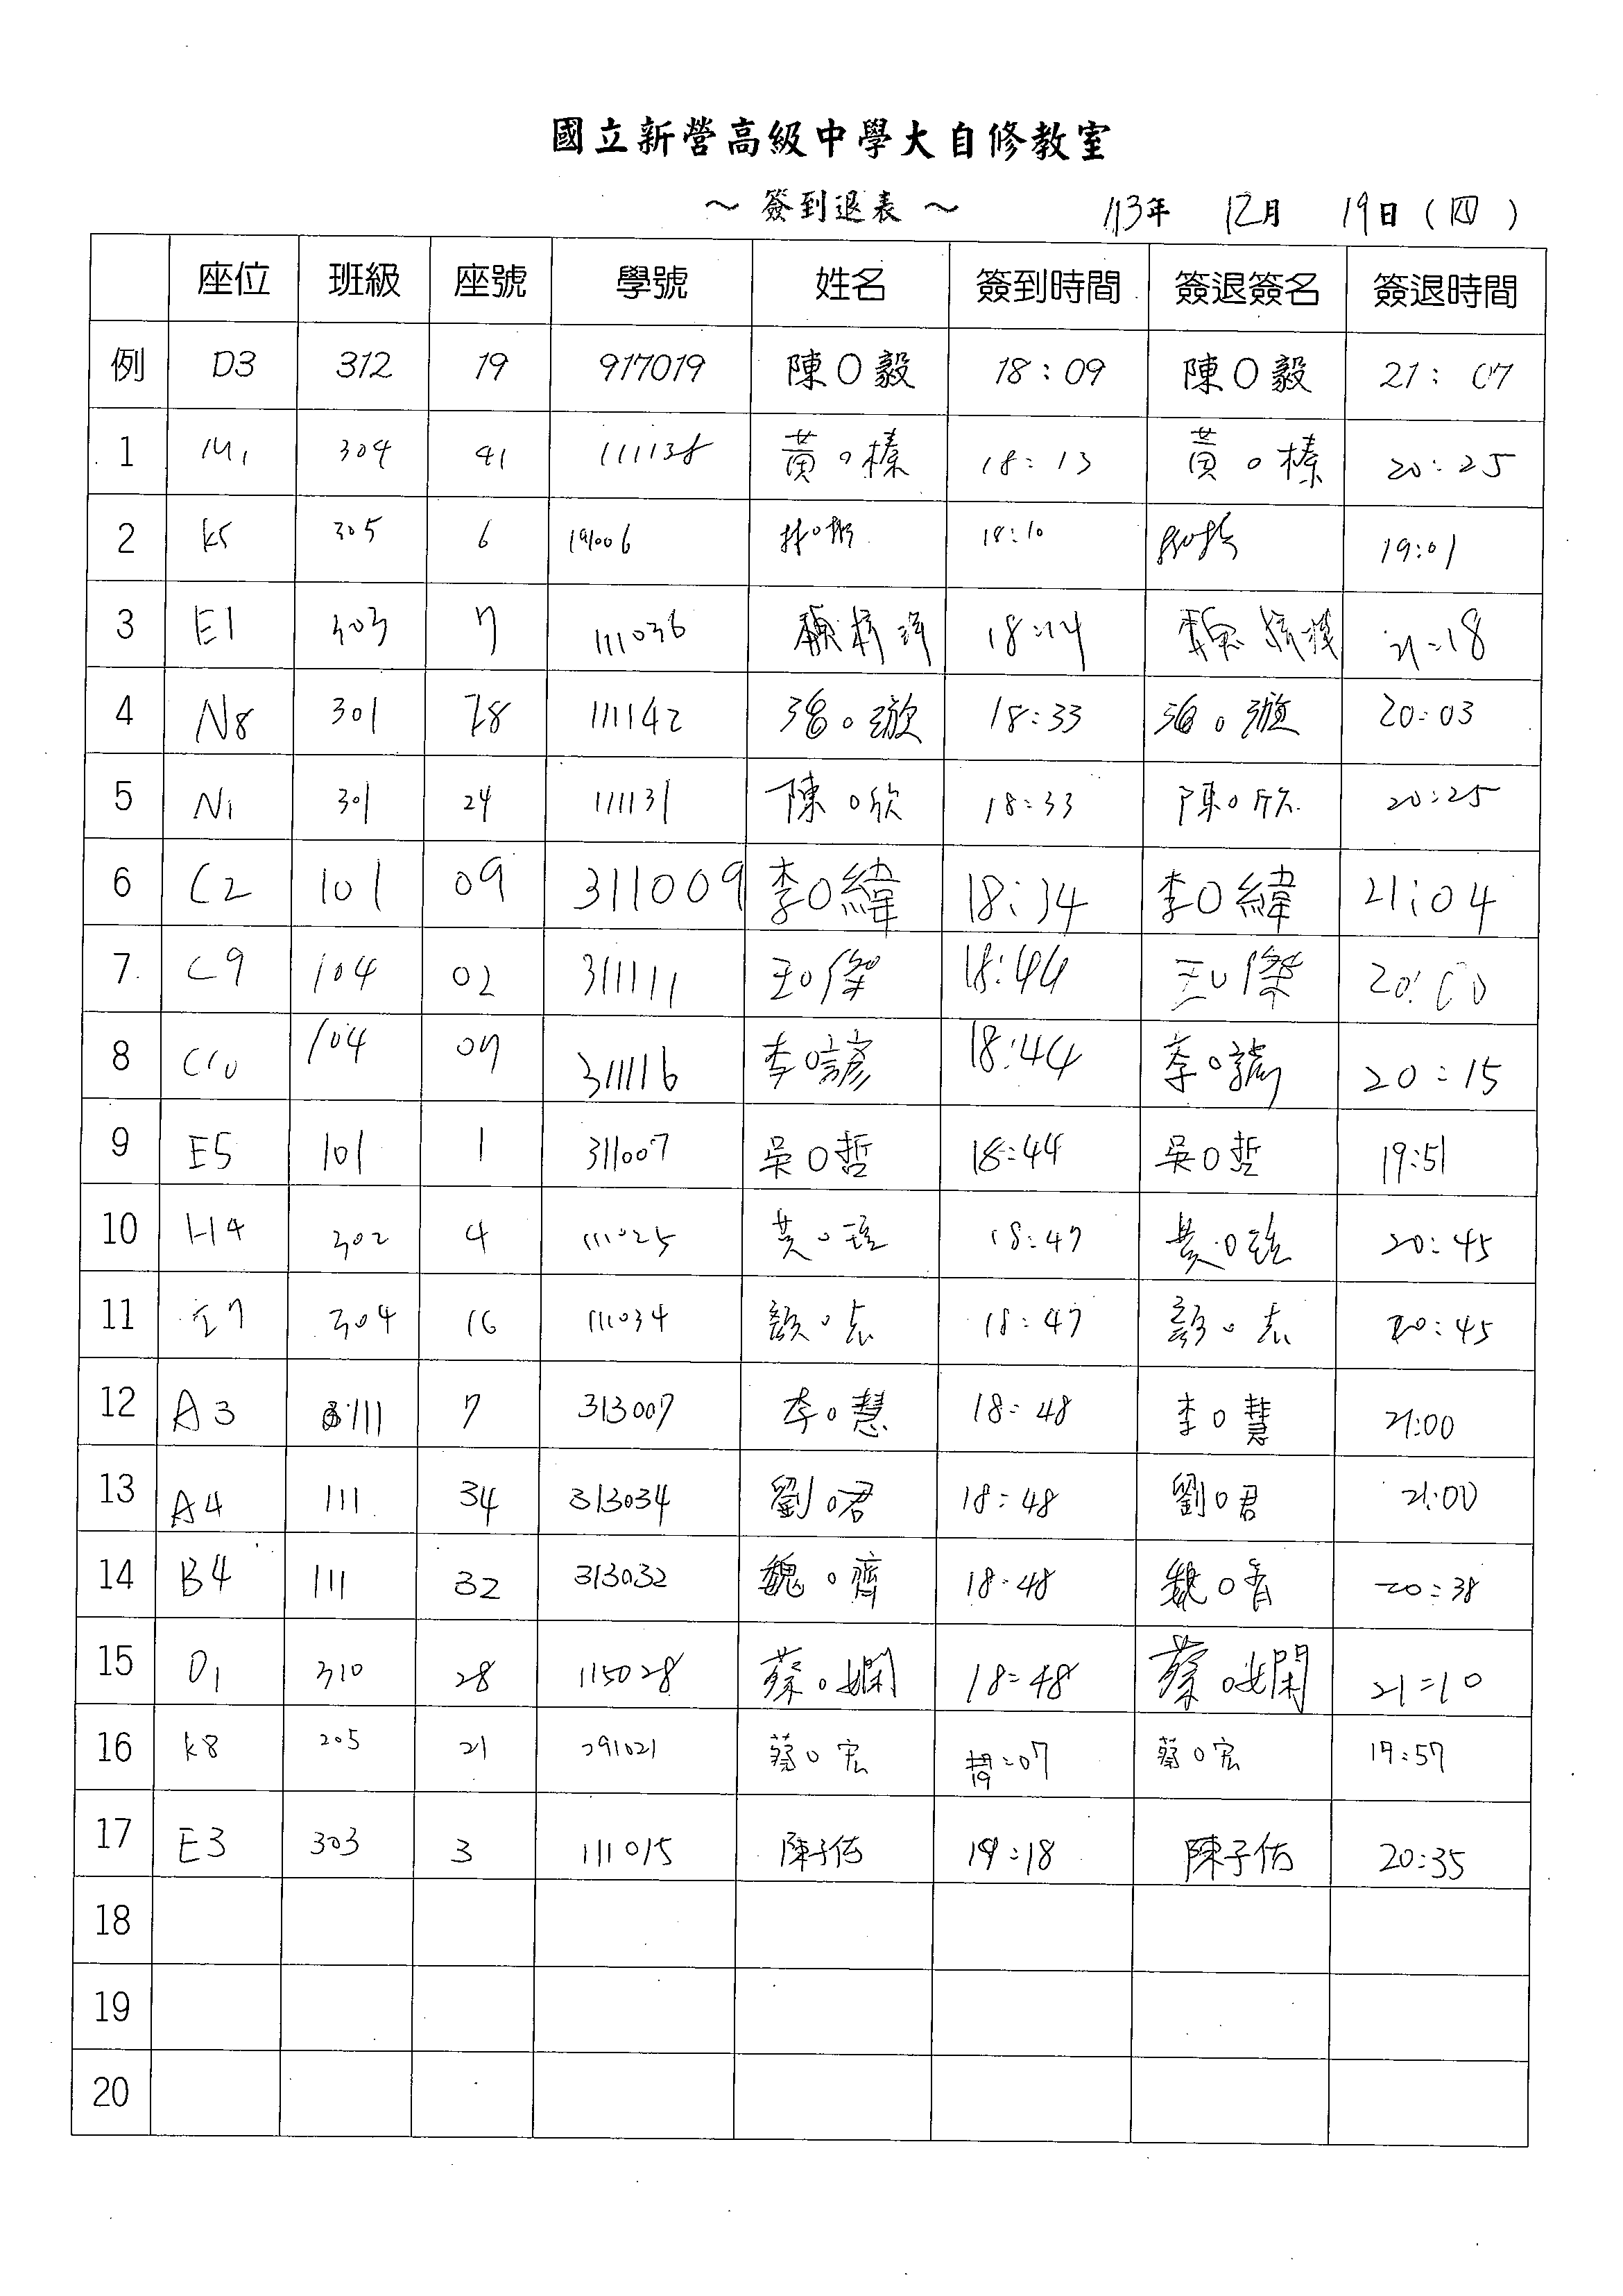 國立新營高級中學大自修教室
～ 簽到退表 ～ 113年 12月 19日 (四)
座位 班級 座號 學號 姓名 簽到時間 簽退簽名 簽退時間
例 D3 312 19 917019 陳O毅 18:09 陳O毅 21:07
1 M1 304 41 111138 黃O榛 18:13 黃O榛 20:25
2 K5 305 6 191006 林O 18:10 19:01
3 E1 303 7 111036 18:14 21:18
4 N8 301 28 111142 O漩 18:33 O漩 20:03
5 N1 301 24 111131 陳O欣 18:33 陳O欣 20:25
6 C2 101 09 311009 李O緯 18:34 李O緯 21:04
7 C9 104 02 311111 王O傑 18:44 王O傑 20:00
8 C10 104 07 311116 李O諺 18:44 李O諺 20:15
9 E5 101 1 311007 吳O哲 18:44 吳O哲 19:51
10 H4 302 4 111025 黃O 18:47 黃O 20:45
11 304 16 111034 顏O志 18:47 顏O志 20:45
12 A3 111 7 313007 李O慧 18:48 李O慧 21:00
13 A4 111 34 313034 劉O君 18:48 劉O君 21:00
14 B4 111 32 313032 魏O齊 18:48 魏O 20:38
15 O1 310 28 115028 蔡O嫻 18:48 蔡O嫻 21:10
16 K8 205 21 291021 蔡O宏 19:07 蔡O宏 19:57
17 E3 303 3 111015 陳子佑 19:18 陳子佑 20:35
18
19
20